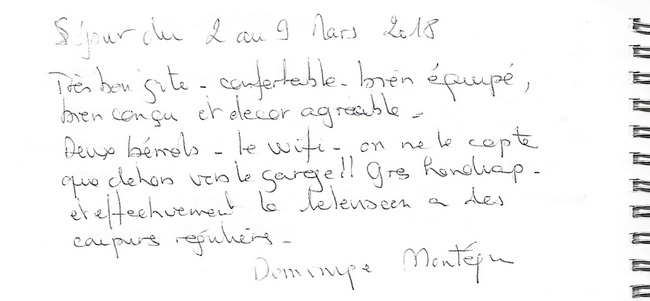 Séjour du 2 au 9 Mars 2018
Très bon gîte - confortable - bien équipé,
bien conçu et decor agreable -
Deux bémols - le wifi - on ne le capte
que dehors vers le garage!! Gros handicap -
et effectivement la television a des
coupures régulières -
Dominique